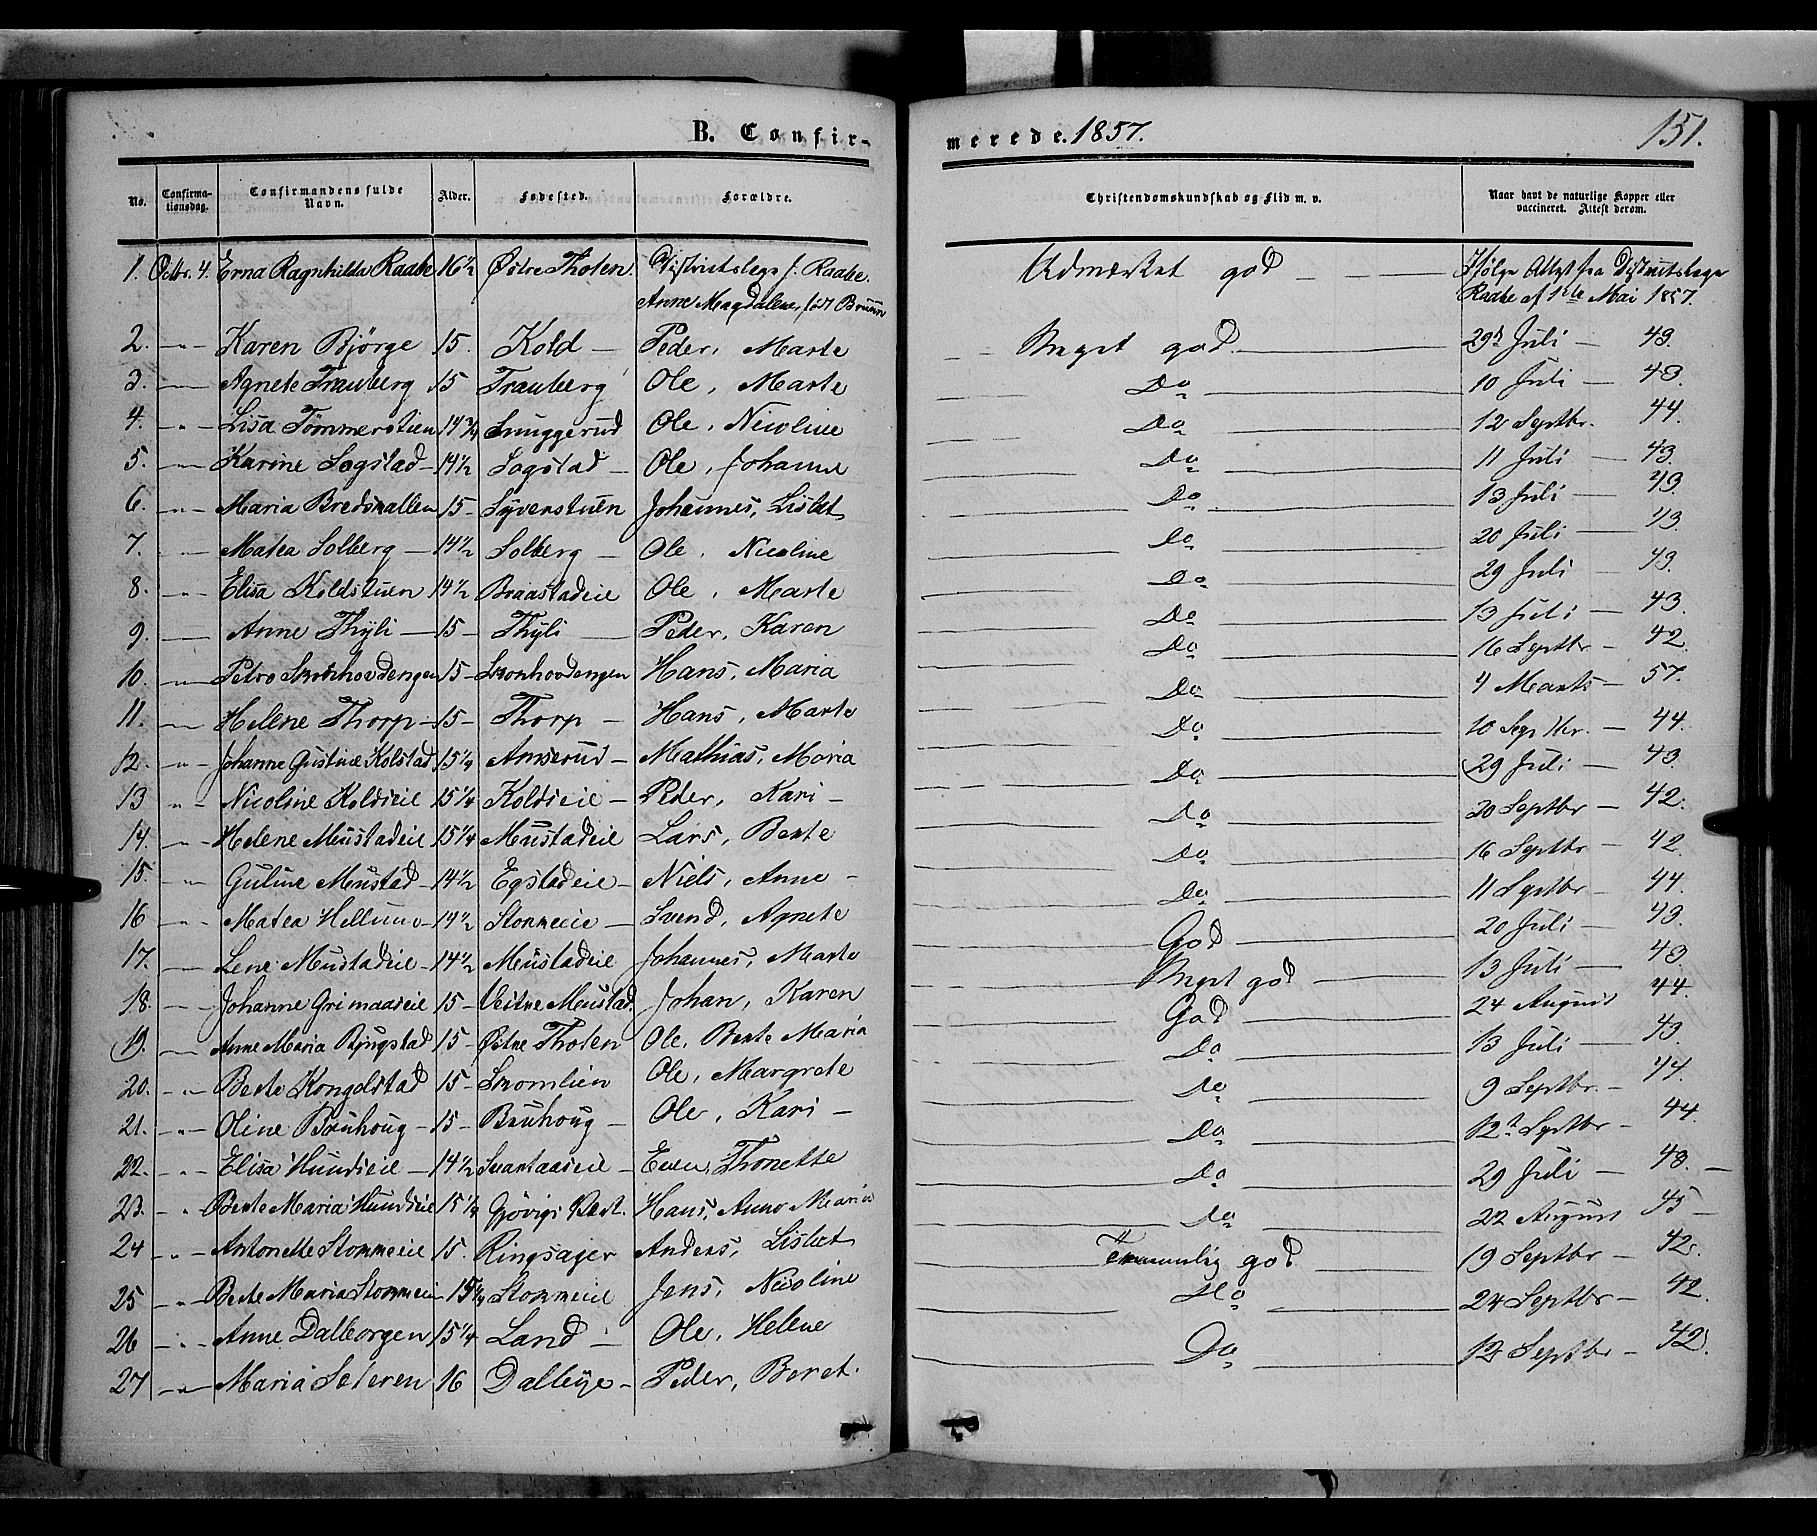 B. Confir-
merede. 1857.
151.
No.
Confirma-
tionsdag.
Confirmandens fulde
Navn.
Alder.
Fødested.
Forældre.
Christendomskundskab og Flid m. v.
Naar havt de naturlige Kopper eller
vaccineret. Attest derom.
1. Octbr. 4. Erna Ragnhilda Raabe 16½ Østre Thoten. Districtslæge J. Raabe. Udmærket god — Ifølge Attest fra Districtslæge
Anne Magdalene, født Bruun Raabe af 1ste Mai 1857.
2. -"- Karen Bjørge 15. Kold — Peder, Marte Meget god. 29d Juli — 43.
3. — Agnete Trauberg 15 Trauberg Ole, Marte Do 10 Juli — 43.
4. " Lisa Tømmerstuen 14¾ Snuggerud Ole, Nicoline Do 12 Septbr. 44.
5. — Karine Sogstad — 14½ Sogstad — Ole, Johanne Do 11 Juli — 43.
6. -"- Maria Bredskallen 15 - Syverstuen Johannes, Lisbet Do 13 Juli — 43
7. — Matea Solberg — 14½ Solberg — Ole, Nicoline Do 20 Juli — 43
8. -"- Elisa Koldstuen 14½ Braastadeie Ole, Marte Do 29 Juli 43.
9. — Anne Thyli — 15 - Thyli — Peder, Karen Do 13 Juli — 43.
10. -"- Petra Skonhovdengen 15 - Skonhovdengen Hans, Maria Do 16 Septbr — 42
11. — Helene Thorp — 15 - Thorp — Hans, Marte Do 4 Marts — 57.
12. -"- Johanne Gustine Kolstad 15¼ Amserud — Mathias, Maria Do 10 Septbr. — 44.
13 " Nicoline Koldseie 15¼ Koldseie — Peder, Kari — Do 29 Juli — 43
14. -"- Helene Mustadeie 15¼ Mustadeie Lars, Berte Do 20 Septbr — 42.
15. -"- Guline Mustad — 14½ Egstadeie — Niels, Anne — Do 16 Septbr — 42.
16 -"- Matea Hellum — 14½ Stommeie — Svend, Agnete Do 11 Septbr — 44.
17. — Lene Mustadeie — 14½ Mustadeie Johannes, Marte God 20 Juli — 43.
18. -"- Johanne Grimaaseie 15 - Vestre Mustad. Johan, Karen Meget god 13 Juli — 43
19. — Anne Maria Ryngstad 15 - Østre Thoten Ole, Berte Maria God 24 August 44.
20. -"- Berte Kongelstad 15 - Skomlien Ole, Margrete Do 13 Juli — 43.
21. -"- Oline Bruhoug — 15 - Bruhoug — Ole, Kari — Do 9 Septbr. — 44.
22. -"- Elisa Hundseie — 14½ Svartaaseie — Even, Thonette Do 12t Septbr — 44.
23. -" Berte Maria Hundseie 15¼ Gjøvigs Hans, Anne Maria Do 29 Juli — 43. —
24 -"- Antonette Stommeie 15. Ringsager Anders, Lisbet Do 22 August 45 —
25 -"- Berte Maria Stommeie 15¼ Stommeie Jens, Nicoline Temmelig god 19 Septbr — 42.
26 -"- Anne Dalborgen 15¼ Land — Ole, Helene Do 24 Septbr — 42.
27 — Maria Seteren 16 Dalbye — Peder, Beret. Do 12 Septbr — 42.